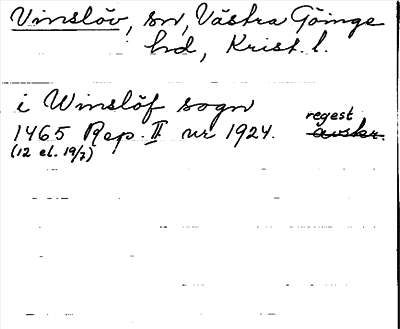 Vinslöv, sn, Västra Göinge
hd, Krist. l.
i Winslöf sogn
1465 Rep. II nr 1924. regest avskr.
(12 el. 19/7)